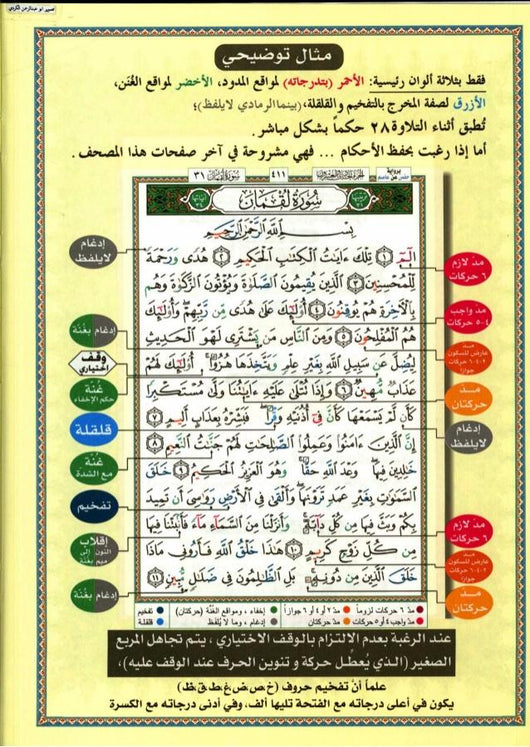 تصوير ابو عبدالرحمن الكردي
مثال توضيحي
فقط بثلاثة ألوان رئيسية: الأحمر (بتدرجاته) لمواقع المدود، الأخضر لمواقع الغُنَن،
الأزرق لصفة المخرج بالتفخيم والقلقلة، (بينما الرمادي لا يلفظ)؛
تُطبق أثناء التلاوة ٢٨ حكماً بشكل مباشر.
أما إذا رغبت بحفظ الأحكام ... فهي مشروحة في آخر صفحات هذا المصحف.
سورة لقمان ٣١
٤١١
سُورَةُ لُقْمَان
بِسْمِ اللَّهِ الرَّحْمَٰنِ الرَّحِيمِ
الٓمٓ ١ تِلْكَ ءَايَٰتُ الْكِتَٰبِ الْحَكِيمِ ٢ هُدًى وَرَحْمَةً
لِّلْمُحْسِنِينَ ٣ الَّذِينَ يُقِيمُونَ الصَّلَوٰةَ وَيُؤْتُونَ الزَّكَوٰةَ وَهُم
بِالْءَاخِرَةِ هُمْ يُوقِنُونَ ٤ أُوْلَٰٓئِكَ عَلَىٰ هُدًى مِّن رَّبِّهِمْ وَأُوْلَٰٓئِكَ
هُمُ الْمُفْلِحُونَ ٥ وَمِنَ النَّاسِ مَن يَشْتَرِى لَهْوَ الْحَدِيثِ
لِيُضِلَّ عَن سَبِيلِ اللَّهِ بِغَيْرِ عِلْمٍ وَيَتَّخِذَهَا هُزُوًا أُوْلَٰٓئِكَ لَهُمْ
عَذَابٌ مُّهِينٌ ٦ وَإِذَا تُتْلَىٰ عَلَيْهِ ءَايَٰتُنَا وَلَّىٰ مُسْتَكْبِرًا
كَأَن لَّمْ يَسْمَعْهَا كَأَنَّ فِىٓ أُذُنَيْهِ وَقْرًا فَبَشِّرْهُ بِعَذَابٍ أَلِيمٍ ٧
إِنَّ الَّذِينَ ءَامَنُوا وَعَمِلُوا الصَّٰلِحَٰتِ لَهُمْ جَنَّٰتُ النَّعِيمِ ٨
خَٰلِدِينَ فِيهَا وَعْدَ اللَّهِ حَقًّا وَهُوَ الْعَزِيزُ الْحَكِيمُ ٩ خَلَقَ
السَّمَٰوَٰتِ بِغَيْرِ عَمَدٍ تَرَوْنَهَا وَأَلْقَىٰ فِى الْأَرْضِ رَوَٰسِىَ أَن تَمِيدَ
بِكُمْ وَبَثَّ فِيهَا مِن كُلِّ دَآبَّةٍ وَأَنزَلْنَا مِنَ السَّمَآءِ مَآءً فَأَنۢبَتْنَا فِيهَا
مِن كُلِّ زَوْجٍ كَرِيمٍ ١٠ هَٰذَا خَلْقُ اللَّهِ فَأَرُونِى مَاذَا
خَلَقَ الَّذِينَ مِن دُونِهِ بَلِ الظَّٰلِمُونَ فِى ضَلَٰلٍ مُّبِينٍ ١١
إدغام
لا يلفظ
إدغام بغُنّة
وقف
اختياري
غُنّة
حكم الإخفاء
قلقلة
غُنّة
مع الشدّة
تفخيم
إقلاب
النون إلى
ميم بغُنّة
إدغام بغُنّة
مدّ لازم
٦ حركات
مدّ واجب
٤-٥ حركات
مد
عارض للسكون
٢-٤-٦ حركات
جوازاً
مد
حركتان
إدغام
لا يلفظ
مدّ لازم
٦ حركات
مد
عارض للسكون
٢-٤-٦ حركات
جوازاً
مد
حركتان
مدّ ٦ حركات لزوماً مدّ ٢ أو ٤ أو ٦ جوازاً إخفاء، ومواقع الغُنّة (حركتان) تفخيم
مدّ واجب ٤ أو ٥ حركات مدّ حركتان إدغام، وما لا يُلفظ قلقلة
عند الرغبة بعدم الالتزام بالوقف الاختياري، يتم تجاهل المربع
الصغير (الذي يُعطِّل حركة و تنوين الحرف عند الوقف عليه)،
علماً أنّ تفخيم حروف (خ،ص،ض،غ،ط،ق،ظ)
يكون في أعلى درجاته مع الفتحة تليها ألف، وفي أدنى درجاته مع الكسرة